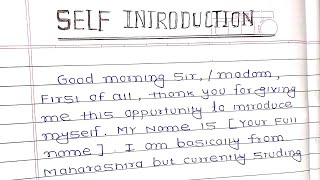 SELF INTRODUCTION
Good morning Sir,/madam,
First of all, thank you for giving
me this opportunity to introduce
myself. My Name is [Your Full
name]. I am basically from
Maharashtra but currently studing